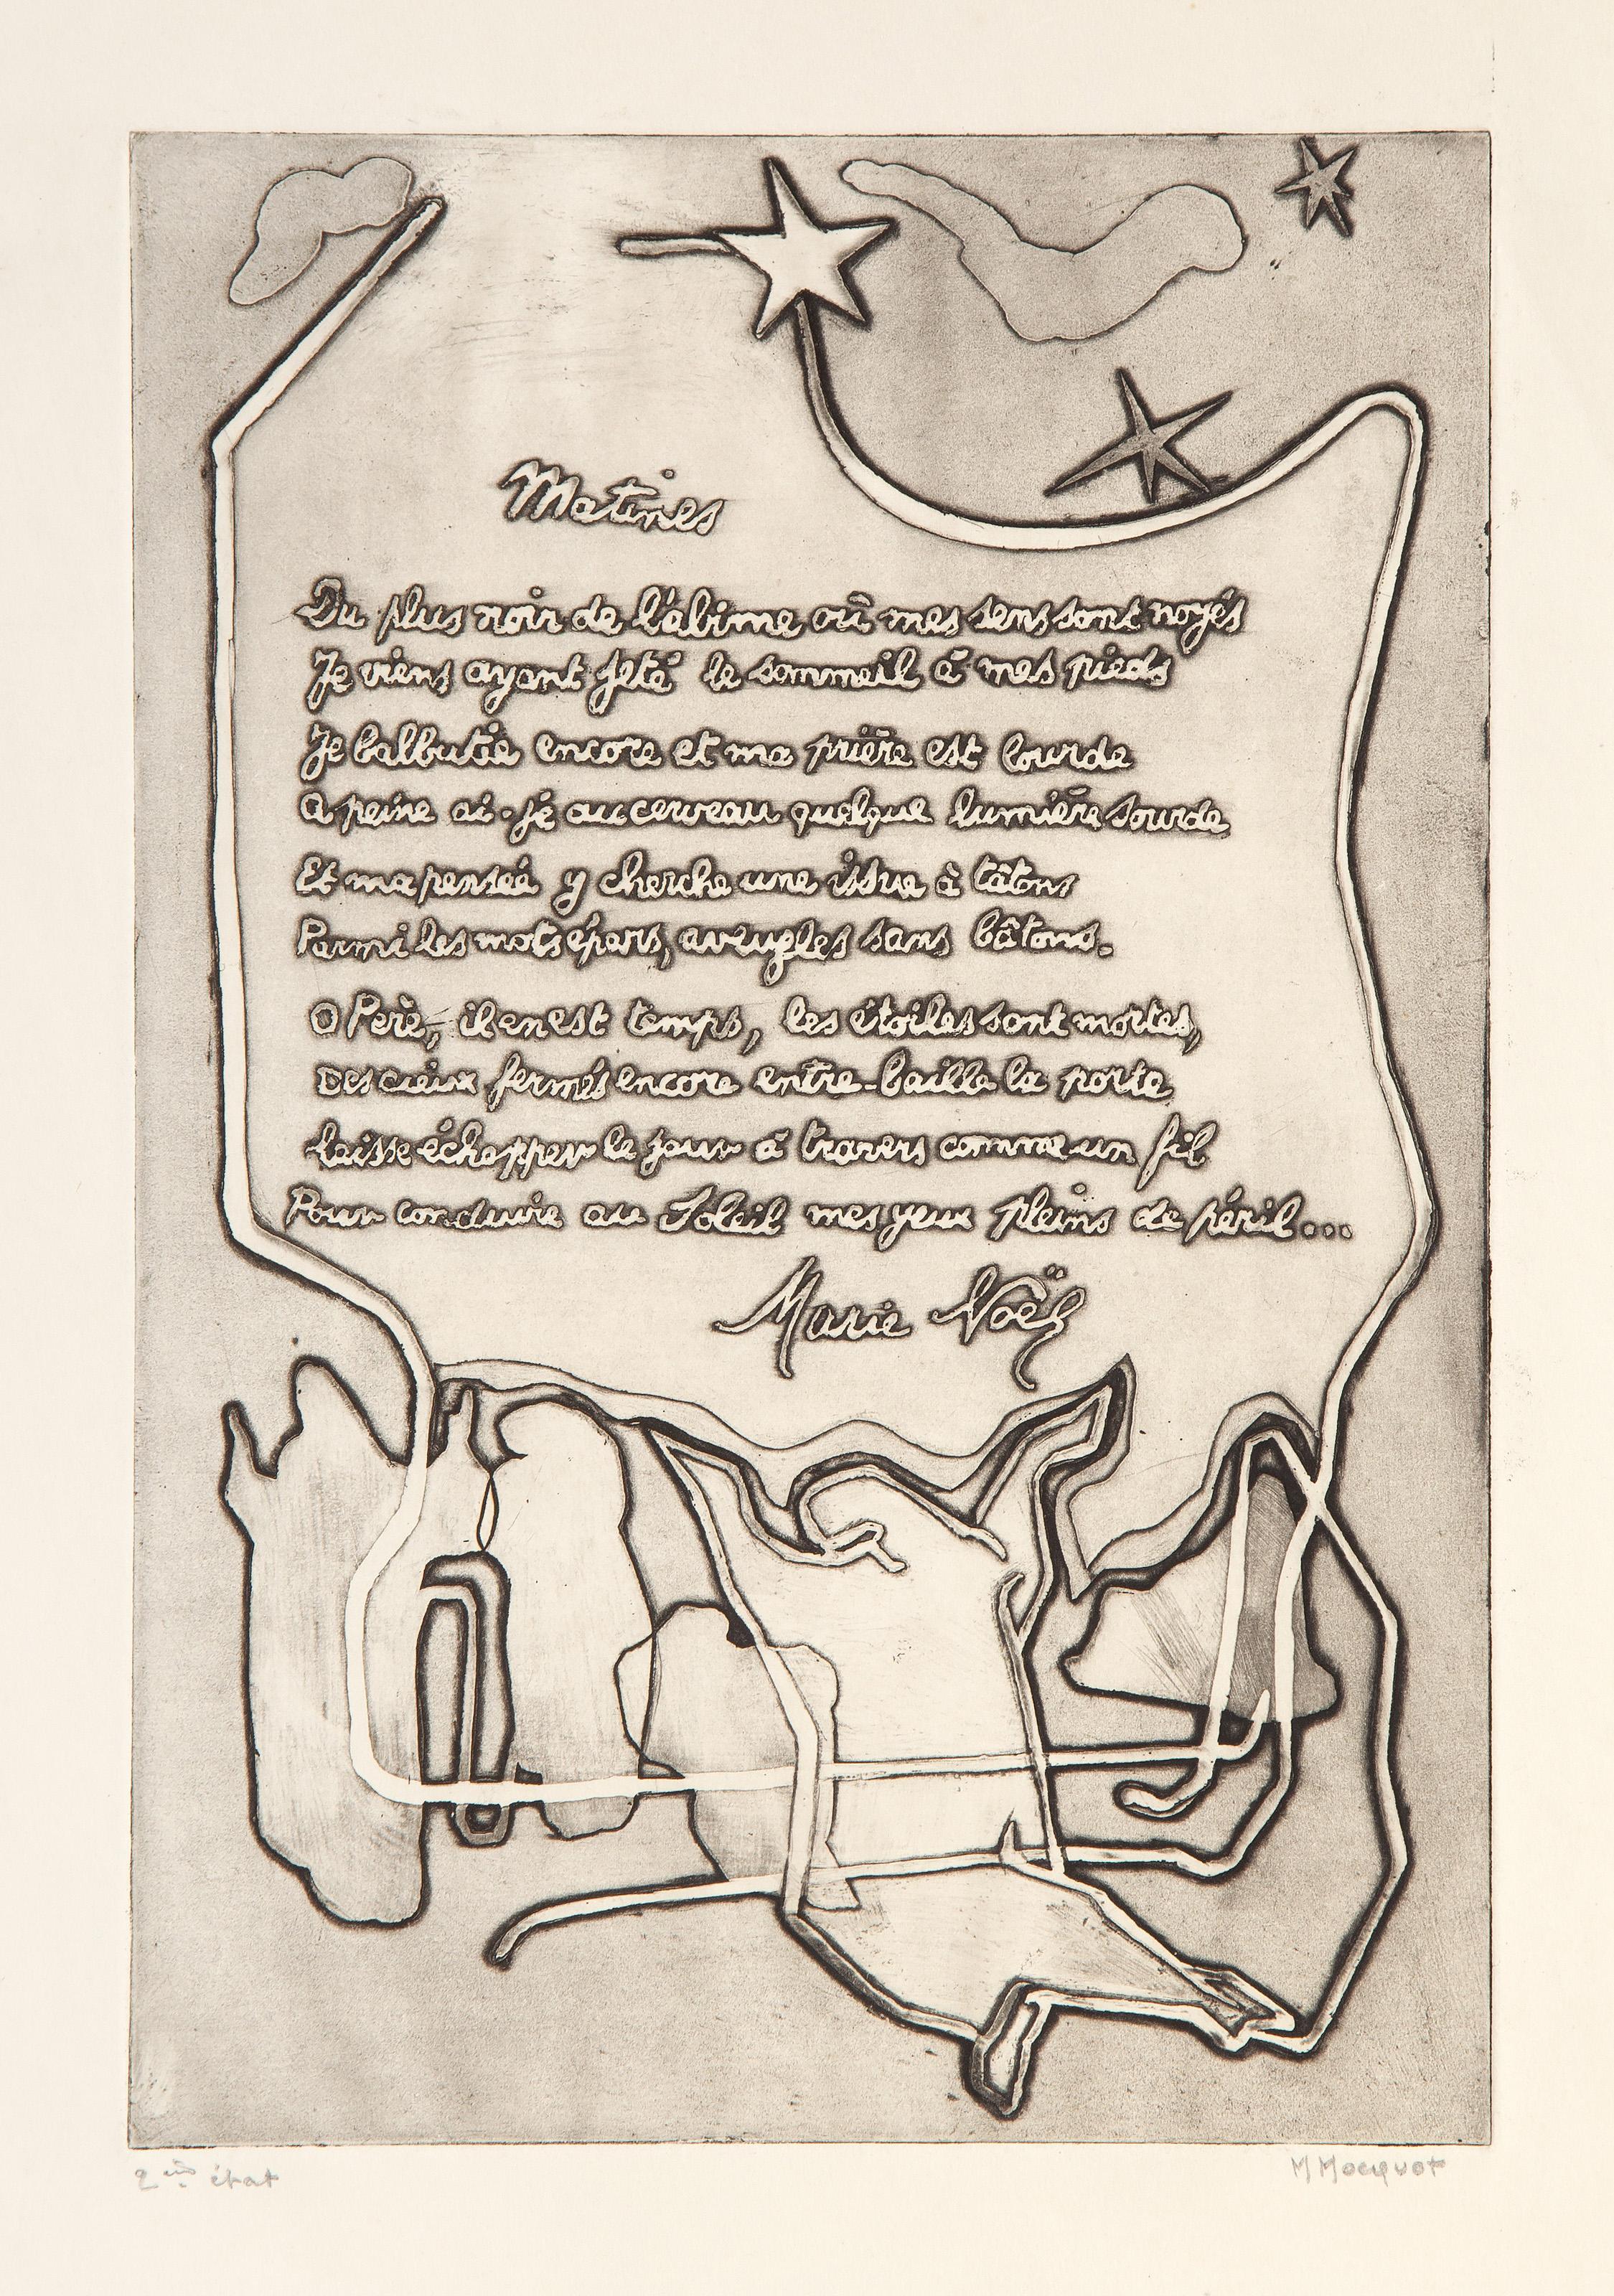 Matines
Du plus noir de l'abime où mes sens sont noyés
Je viens ayant jeté le sommeil à mes pieds
Je balbutie encore et ma prière est lourde
A peine ai-je au cerveau quelque lumière sourde
Et ma pensée y cherche une issue à tâtons
Parmi les mots épars, aveugles sans bâtons.
O Père, il en est temps, les étoiles sont mortes,
Des cieux fermés encore entre-baille la porte
laisse échapper le jour à travers comme un fil
Pour conduire au Soleil mes yeux pleins de péril...
Marie Noël
2ème état
M Mocquot